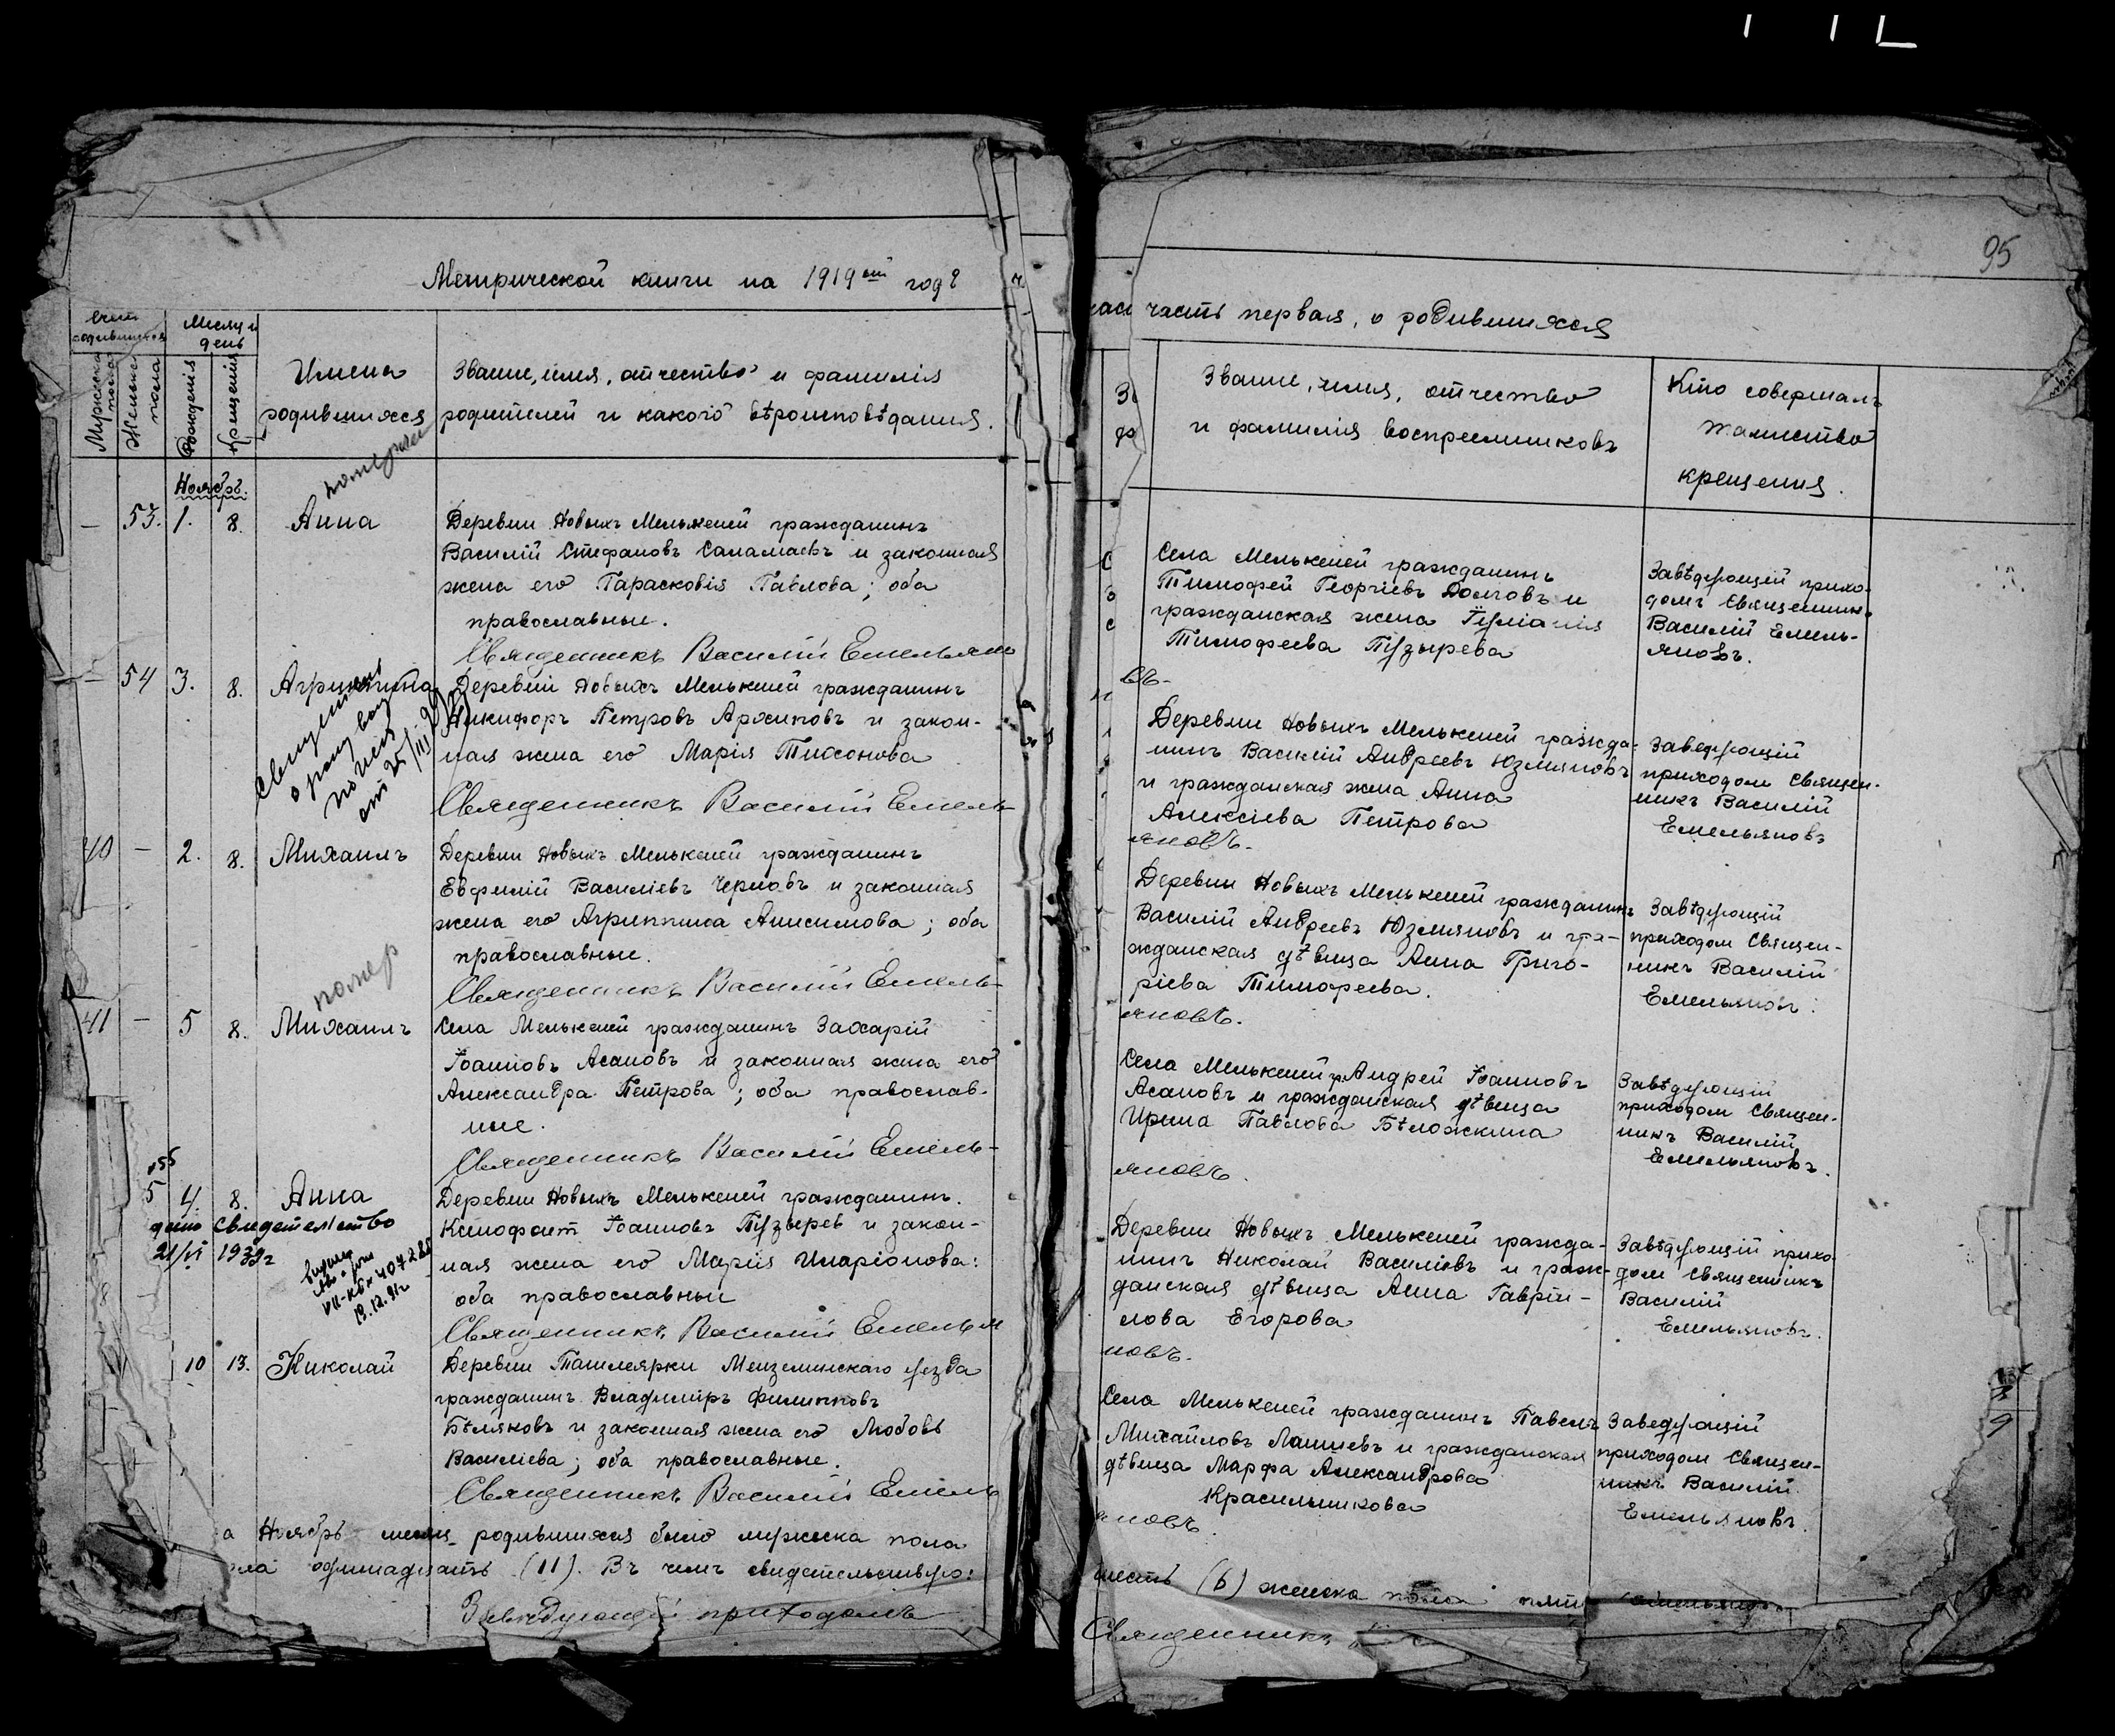 95
Метрической книги на 1919ый годъ
часть первая, о родившихся
Счетъ родившихся
Мужска пола
Женска пола
Месяц и день
Рожденія
Крещенія
Имена
родившихся
Званіе, имя, отчество и фамилія
родителей и какого вѣроисповѣданія.
Званіе, имя, отчество
и фамилія воспреемниковъ
Кто совершалъ
таинство
крещенія.
Ноябрь.
померла
— 53. 1. 8. Анна
Деревни Новыхъ Мелькеней гражданинъ
Василій Стефановъ Саламаевъ и законная
жена его Парасковія Павлова; оба
православные.
Священникъ Василій Емельян
Села Мелькеней гражданинъ
Тимофей Георгіевъ Долговъ и
гражданская жена Іуліанія
Тимофеева Пузырева
въ.
Завѣдующій прихо-
домъ Священникъ
Василій Емель-
яновъ.
— 54 3. 8. Агриппина
Деревни Новыхъ Мелькеней гражданинъ
Никифоръ Петровъ Архиповъ и закон-
ная жена его Марія Тихонова
Священникъ Василій Емель-
Деревни Новыхъ Мелькеней гражда-
нинъ Василій Андреевъ Юзмяновъ
и гражданская жена Анна
Алексіева Петрова
яновъ.
Заведующій
приходом Священ-
никъ Василій
Емельяновъ
40 — 2. 8. Михаилъ
Деревни Новыхъ Мелькеней гражданинъ
Евфимій Василіевъ Черновъ и законная
жена его Агриппина Анисимова; оба
православные.
Священникъ Василій Емель-
Деревни Новыхъ Мелькеней гражданинъ
Василій Андреевъ Юзмяновъ и гра-
жданская дѣвица Анна Григо-
ріева Тимофеева.
яновъ.
Завѣдующій
приходом Священ-
никъ Василій
Емельянов.
помер
41 — 5 8. Михаилъ
Села Мелькеней гражданинъ Захарій
Іоанновъ Асановъ и законная жена его
Александра Петрова; оба православ-
ные.
Священникъ Василій Емель-
Села Мелькеней гр. Андрей Іоанновъ
Асановъ и гражданская дѣвица
Ирина Павлова Бѣложкина
яновъ.
Завѣдующій
приходом Священ-
никъ Василій
Емельяновъ.
55
5 4. 8. Анна
дано свидетельство
21/VI 1939г
19.12.91г
Деревни Новыхъ Мелькеней гражданинъ.
Ксинофонт Іоанновъ Пузырев и закон-
ная жена его Марія Иларіонова:
оба православные
Священникъ Василій Емелья
Деревни Новыхъ Мелькеней гражда-
нинъ Николай Василіевъ и граж-
данская дѣвица Анна Гавріи-
лова Егорова
новъ.
Завѣдующій прихо-
дом Священникъ
Василій
Емельяновъ.
10 13. Николай
Деревни Ташлеярки Мензелинскаго уезда
гражданинъ Владиміръ Филипповъ
Бѣляковъ и законная жена его Любовь
Василіева; оба православные.
Священникъ Василій Емель
Села Мелькеней гражданинъ Павелъ
Михайловъ Лапшевъ и гражданская
дѣвица Марфа Александрова
Красильникова
яновъ.
Заведующій
приходом Священ-
никъ Василій
Емельяновъ.
а Ноябрь месяц родившихся было мужска пола
шесть (6) женска пола пять
ола одиннадцать (11). Въ чемъ свидетельствую:
Завѣдующій приходомъ
Священникъ